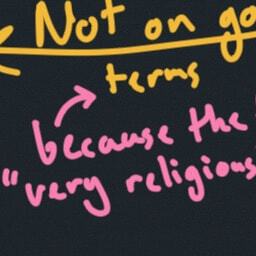 Not on go
terms
because the
"very religious